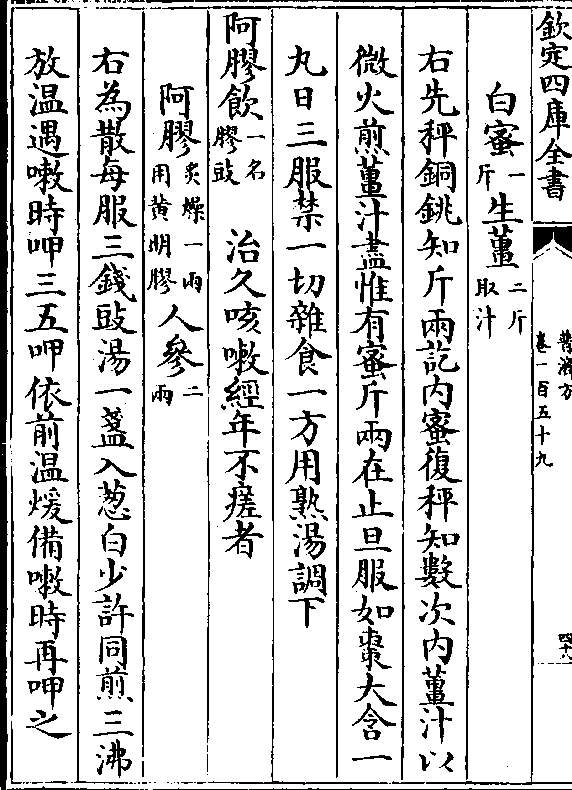 欽定四庫全書
普濟方
卷一百五十九
四十八
白蜜一斤生薑二斤取汁
右先秤銅銚知斤兩訖內蜜復秤知數次內薑汁以
微火煎薑汁盡惟有蜜斤兩在止旦服如棗大含一
丸日三服禁一切雜食一方用熟湯調下
阿膠飲一名膠豉治久咳嗽經年不瘥者
阿膠炙燥一兩用黃明膠人參二兩
右為散每服三錢豉湯一盞入葱白少許同煎三沸
放温遇嗽時呷三五呷依前温煖備嗽時再呷之